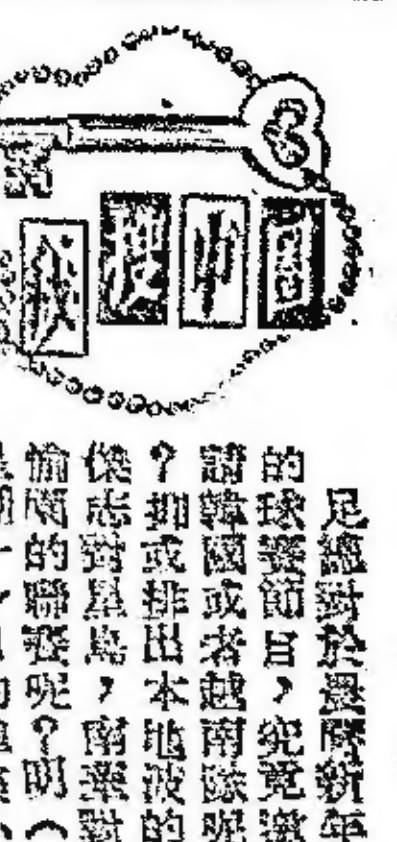 足總對於農曆新年
的球賽節目，究竟邀
請韓國或者越南隊呢
？抑或排出本地波的
傑志對星島，南華對
愉園的聯賽呢？明（